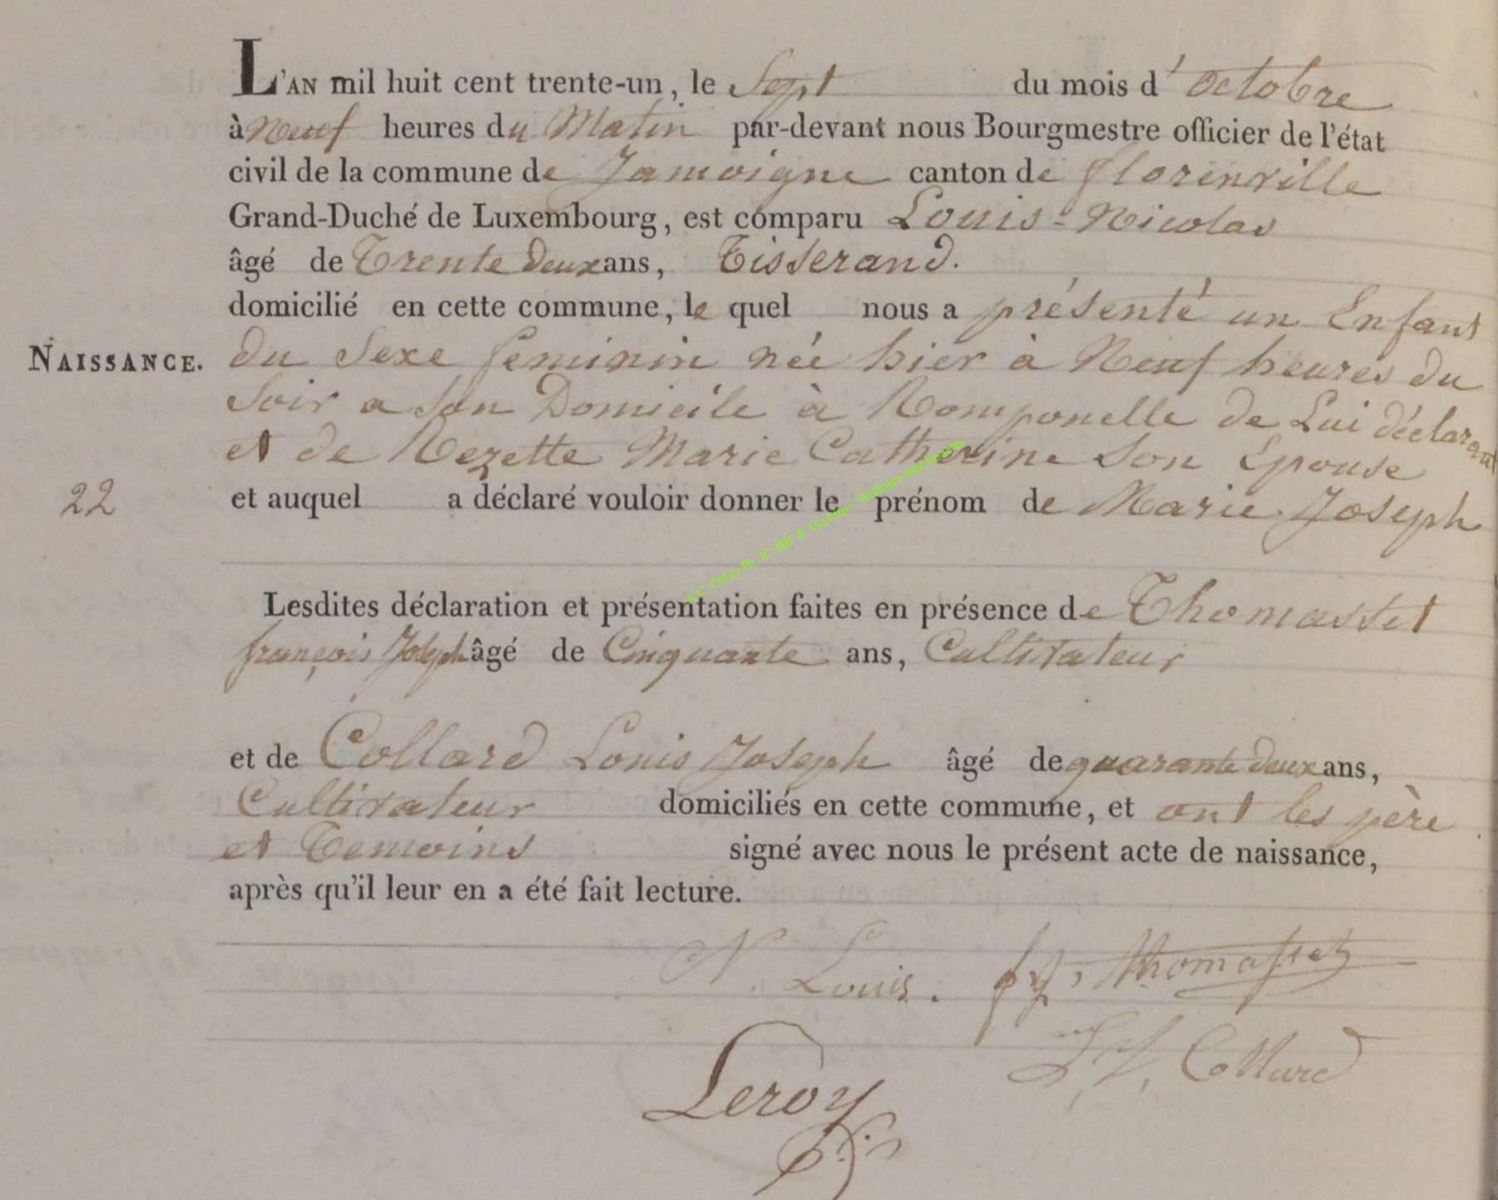 L'AN mil huit cent trente-un, le Sept du mois d'octobre
à Neuf heures du Matin par-devant nous Bourgmestre officier de l'état
civil de la commune de Jamoigne canton de florenville
Grand-Duché de Luxembourg, est comparu Louis-Nicolas
âgé de Trente deux ans, Tisserand.
domicilié en cette commune, le quel nous a présenté un Enfant
NAISSANCE. du Sexe feminin née hier à Neuf heures du
Soir a son Domicile à Romponelle de Lui déclarant
et de Rezette Marie Catherine Son Epouse
22 et auquel a déclaré vouloir donner le prénom de Marie Joseph
Lesdites déclaration et présentation faites en présence de Thomasset
françois Joseph âgé de Cinquante ans, Cultivateur
et de Collard Louis Joseph âgé de quarante deux ans,
Cultivateur domiciliés en cette commune, et ont les père
et Temoins signé avec nous le présent acte de naissance,
après qu'il leur en a été fait lecture.
N. Louis. f j, thomasset
L. J. Collard
Leroy